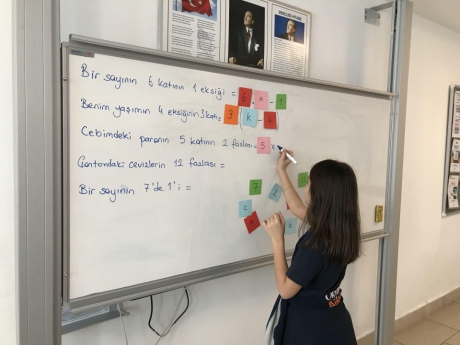 Bir sayının 6 katının 1 eksiği = 6 . x - 1
Benim yaşımın 4 eksiğinin 3 katı = 3 ( k - 4 )
Cebimdeki paranın 5 katının 2 fazlası = 5 x
Çantamdaki cevizlerin 12 fazlası =
Bir sayının 7'de 1'i =
7
2
c